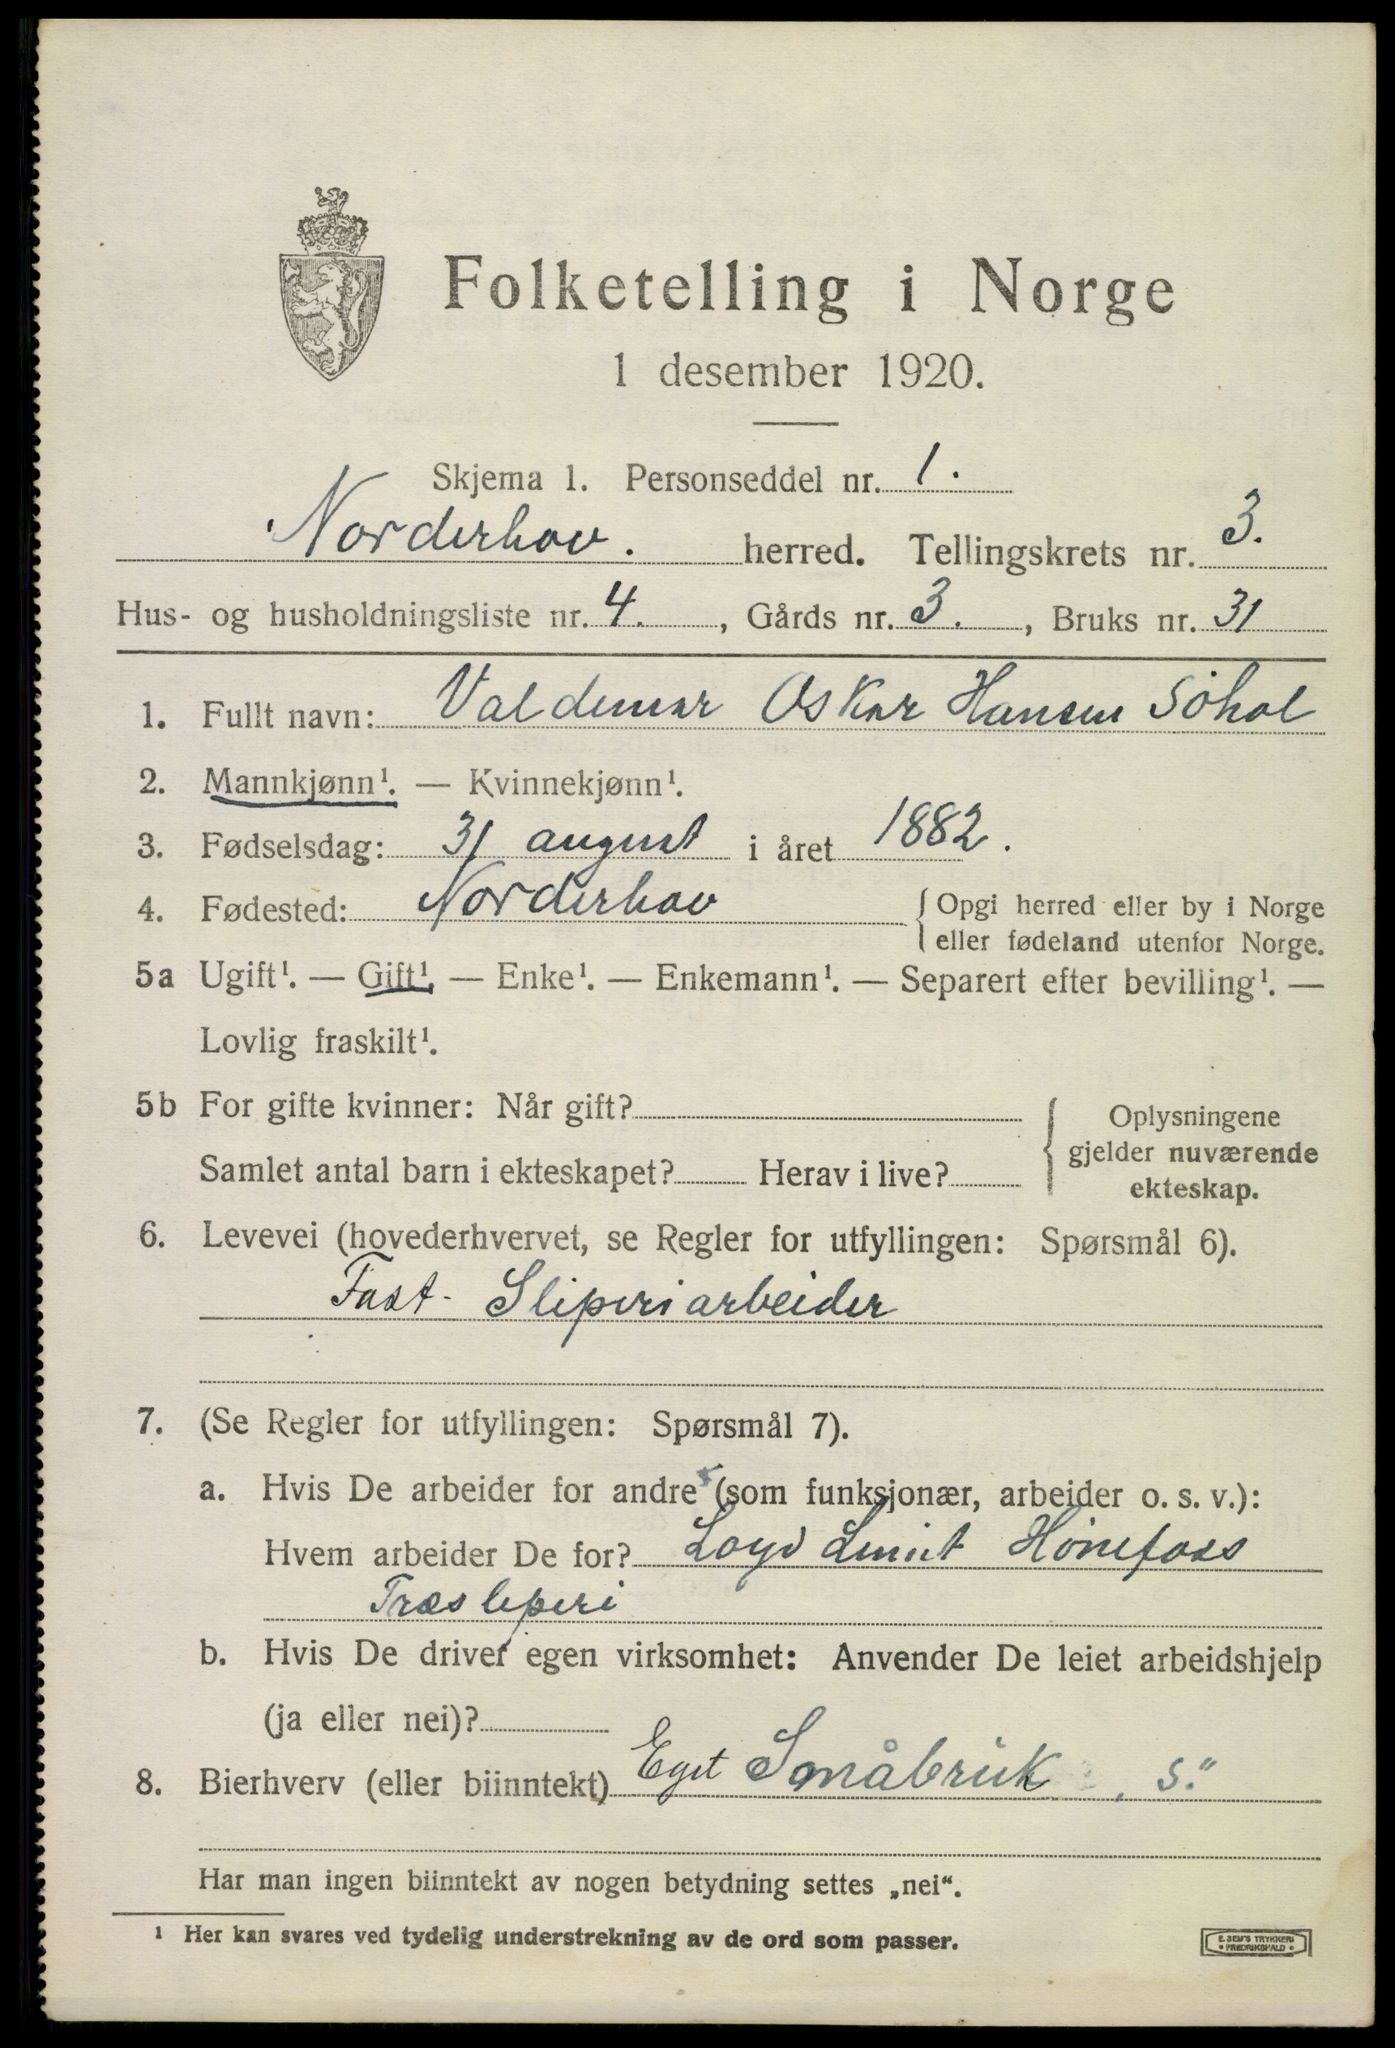 Folketelling i Norge
1 desember 1920.
Skjema 1. Personseddel nr. 1.
Norderhov. herred. Tellingskrets nr. 3.
Hus- og husholdningsliste nr. 4. , Gårds nr. 3. , Bruks nr. 31
1. Fullt navn: Valdemar Oskar Hansen Söhol
2. Mannkjønn¹. — Kvinnekjønn¹.
3. Fødselsdag: 31 august i året 1882.
4. Fødested: Norderhov { Opgi herred eller by i Norge
eller fødeland utenfor Norge.
5a Ugift¹. — Gift¹. — Enke¹. — Enkemann¹. — Separert efter bevilling¹. —
Lovlig fraskilt¹.
5b For gifte kvinner: Når gift? Oplysningene
gjelder nuværende
Samlet antal barn i ekteskapet? Herav i live? ekteskap.
6. Levevei (hovederhvervet, se Regler for utfyllingen: Spørsmål 6).
Fast- Sliperiarbeider
7. (Se Regler for utfyllingen: Spørsmål 7).
a. Hvis De arbeider for andre (som funksjonær, arbeider o. s. v.):
Hvem arbeider De for? Loyd Hönefoss
Træsliperi
b. Hvis De driver egen virksomhet: Anvender De leiet arbeidshjelp
(ja eller nei)?
8. Bierhverv (eller biinntekt) Eget Småbruk , s."
Har man ingen biinntekt av nogen betydning settes „nei“.
¹ Her kan svares ved tydelig understrekning av de ord som passer.
E. SEM'S TRYKKERI
FREDRIKSHALD